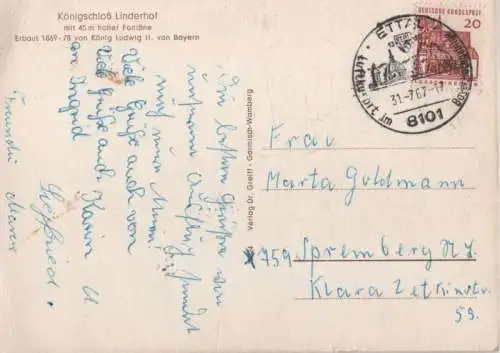 Königschloß Linderhof
mit 45 m hoher Fontäne
Erbaut 1869-78 von König Ludwig II. von Bayern
DEUTSCHE BUNDESPOST
20
ETTAL
Luftkurort im
31.-7.67.-17
8101
Verlag Dr. Greiff - Garmisch-Wamberg
Frau
Marta Guldmann
x 759 Spremberg N.L.
Klara Zetkinstr
59.
Die besten Grüße von
unserem Ausflug sendet
Viele Grüße auch von
Viele Grüße auch Karin u
an Ingrid
Siegfried.
Freundin